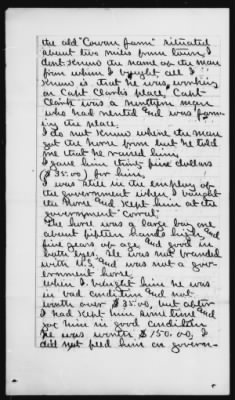 the old "Cowan farm" situated
about two miles from town. I
dont know the name of the man
from whom I bought all I
know is that he was working
on Capt Clark's place, Capt
Clark was a northern man
who had rented and was farm-
ing the place.
I do not know where the man
got the horse from but he told
me that he raised him,
I gave him thirty five dollars
($35.00) for him,
I was still in the employ of
the government when I bought
the horse and kept him at the
government "Corral".
The horse was a large bay one
about fifteen hands high and
five years of age, and good in
both eyes. He was not branded
with U.S. and was not a gov-
ernment horse.
When I bought him he was
in bad condition and not
worth over $35.00, but after
I had kept him some time and
got him in good condition
he was worth $150.00, I
did not feed him on govern-